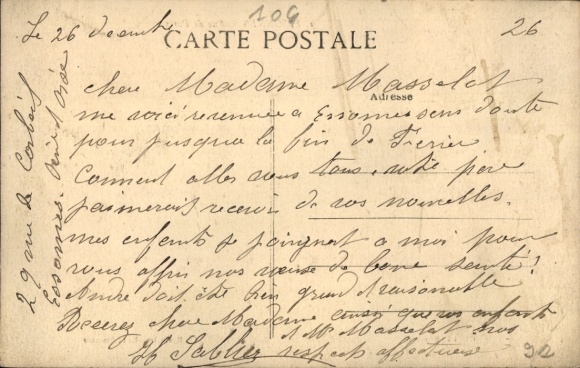 106
26
Le 26 décembre
CARTE POSTALE
Adresse
chere Madame Masselot
me voici revenue a Essonnes sans doute
pour jusqua la fin de Fevrier
Comment allez vous tous, votre pere
j'aimerais recevoir de vos nouvelles.
mes enfants se joignent a moi pour
vous offrir nos voeux de bonne santé!
André doit être bien grand & raisonnable
Recevez chere Madame ainsi que vos enfants
& Mr Masselot nos
respects affectueux
H Sablier
29 rue de Corbeil
Essonnes. Seine et Oise
92